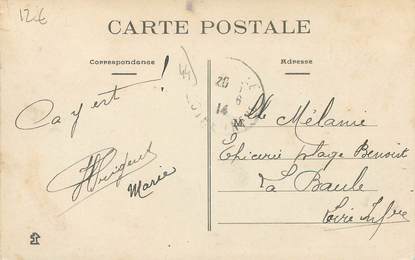 12€
CARTE POSTALE
Correspondance
Adresse
Ca y est!
Marie
44
20
8
14
M
lle Mélanie
Epicerie plage Benoit
La Baule
Loire Infre